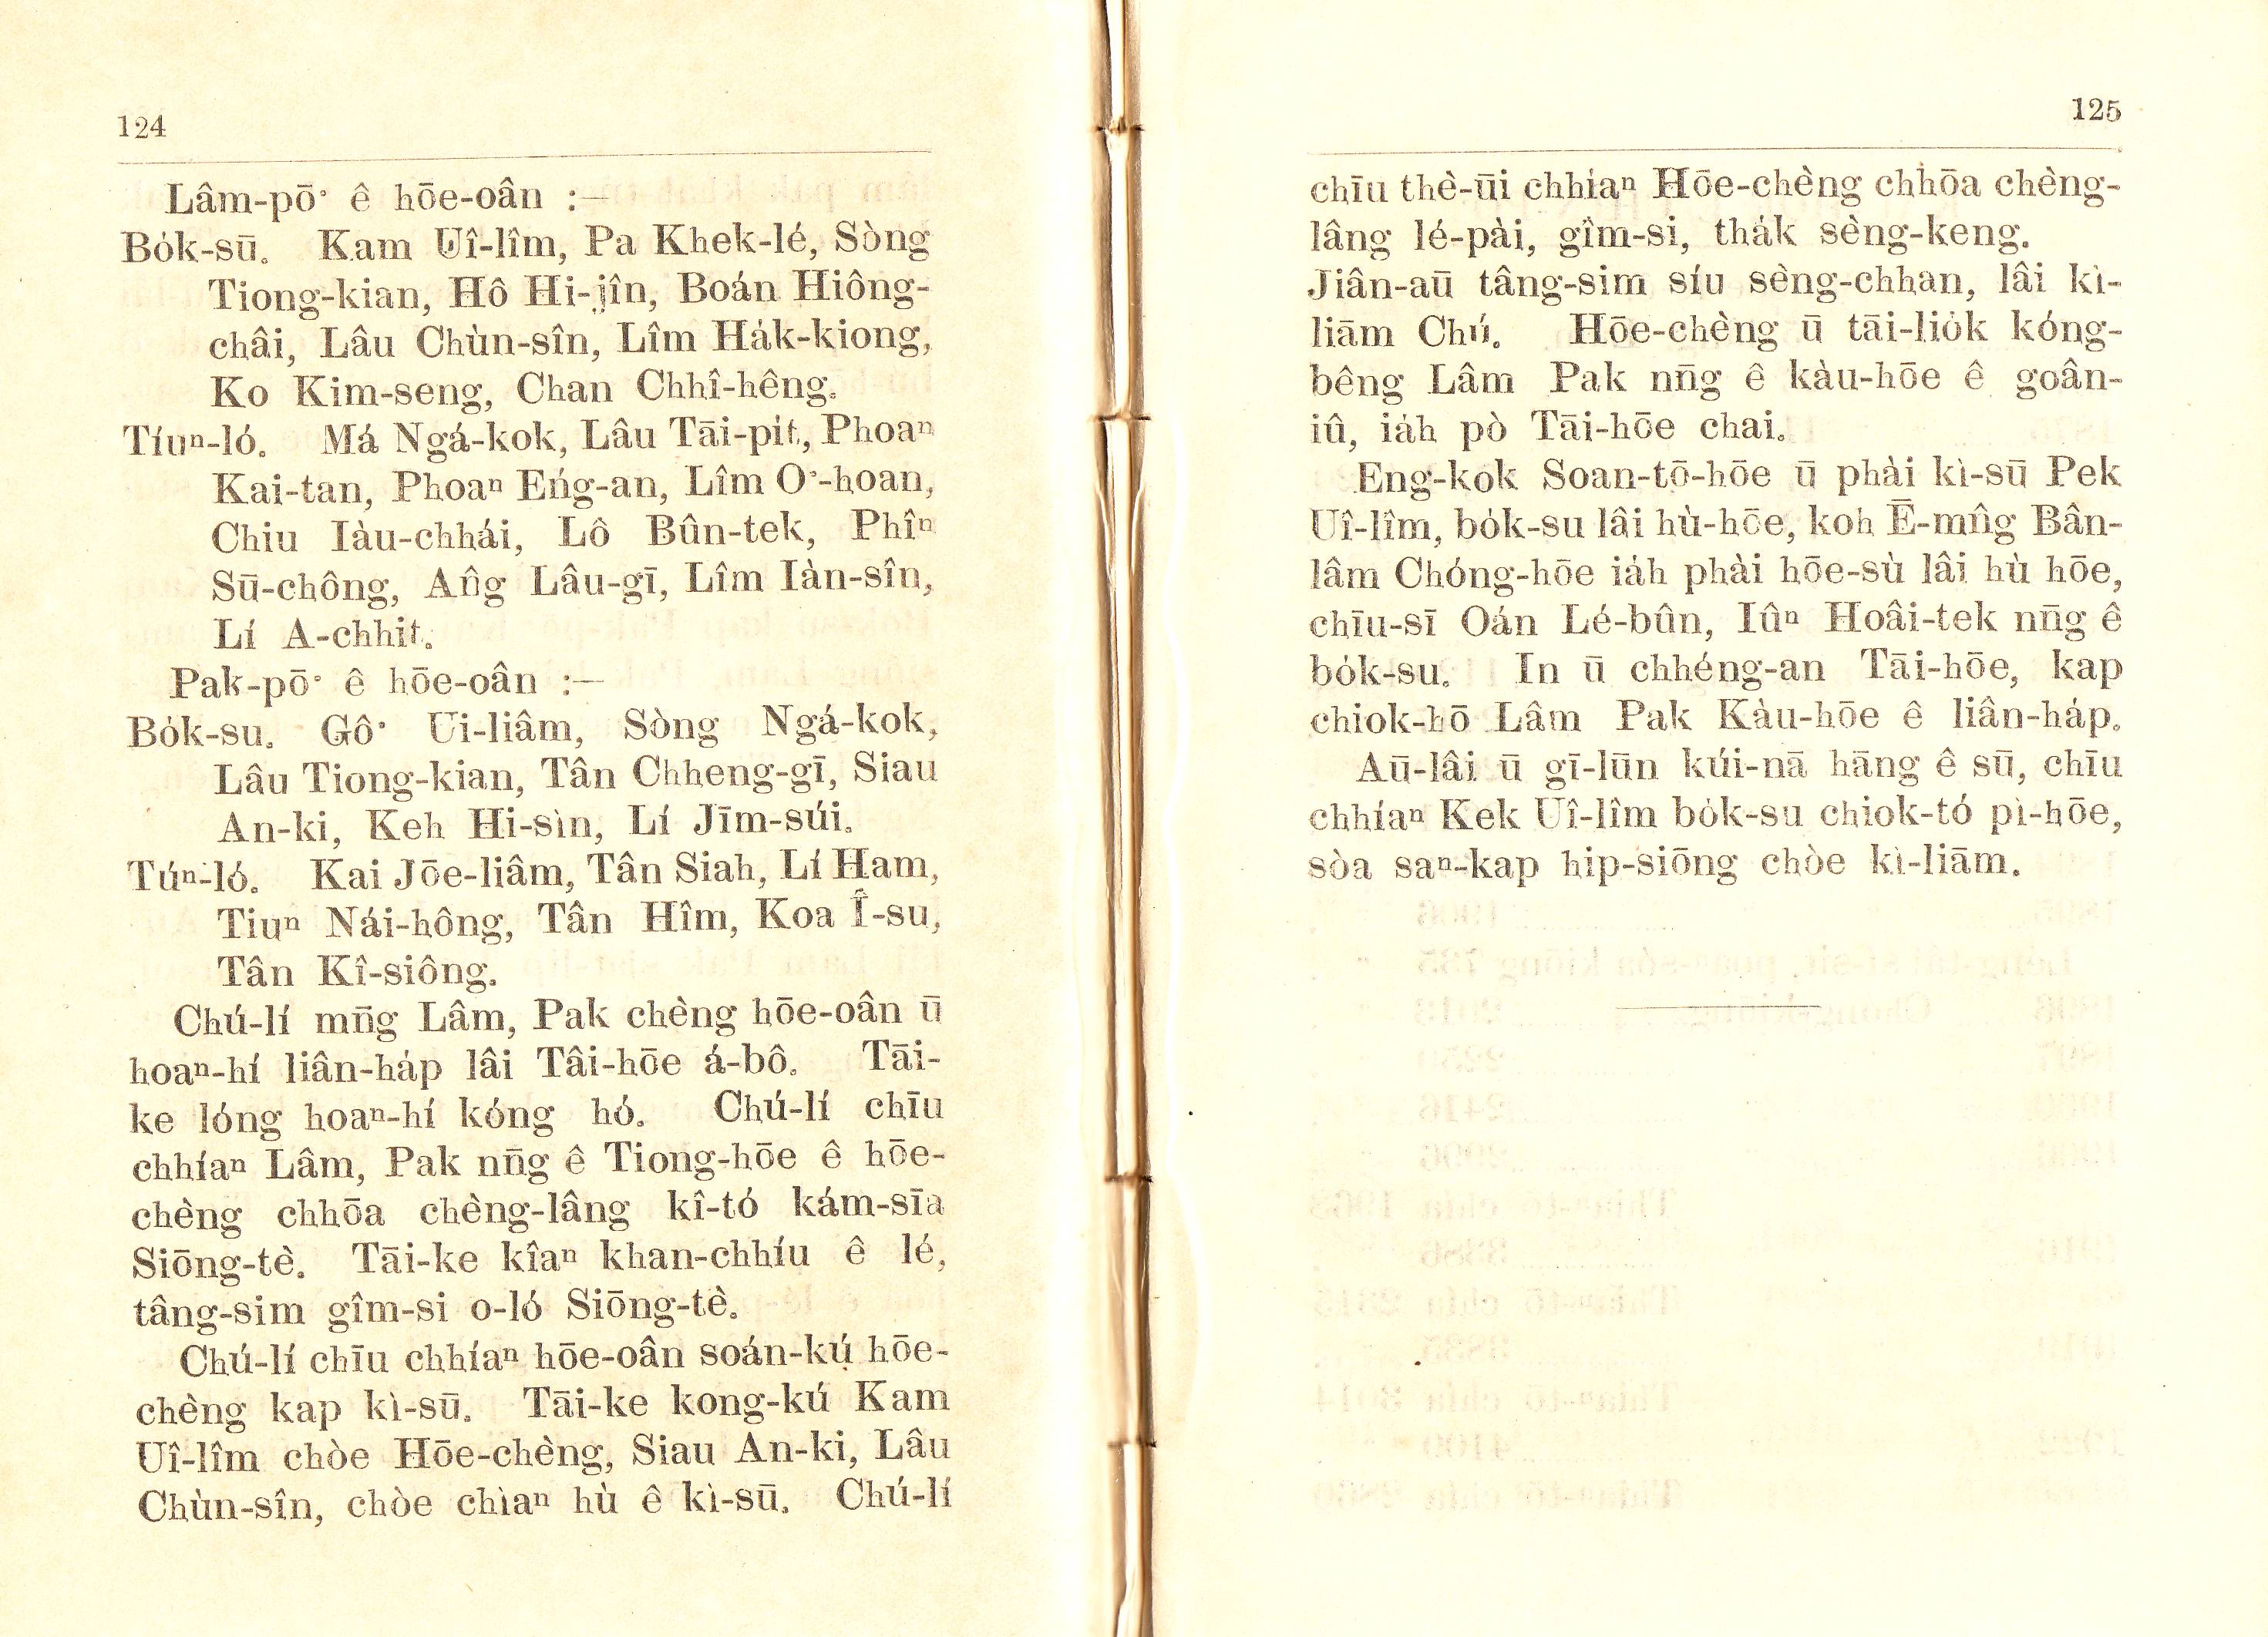 124
Lâm-pō͘ ê hōe-oân :—
Bo̍k-sū. Kam Uî-lîm, Pa Khek-lé, Sòng
Tiong-kian, Hô Hi-jîn, Boán Hiông-
châi, Lâu Chùn-sîn, Lîm Ha̍k-kiong,
Ko Kim-seng, Chan Chhî-hêng.
Tíuⁿ-ló. Má Ngá-kok, Lâu Tāi-pi̍t, Phoaⁿ
Kai-tan, Phoaⁿ Eńg-an, Lîm O͘-hoan,
Chiu Iàu-chhái, Lô Bûn-tek, Phîⁿ
Sū-chông, Anĝ Lâu-gī, Lîm Iàn-sîn,
Lí A-chhit.
Pak-pō͘ ê hōe-oân :—
Bo̍k-su. Gô͘ Ui-liâm, Sòng Ngá-kok,
Lâu Tiong-kian, Tân Chheng-gī, Siau
An-ki, Keh Hi-sìn, Lí Jīm-súi.
Túⁿ-ló. Kai Jōe-liâm, Tân Siah, Lí Ham,
Tiuⁿ Nái-hông, Tân Hîm, Koa Î-su,
Tân Kî-siông.
Chú-lí mn̄g Lâm, Pak chèng hōe-oân ū
hoaⁿ-hí liân-ha̍p lâi Tâi-hōe á-bô. Tāi-
ke lóng hoaⁿ-hí kóng hó. Chú-lí chīu
chhíaⁿ Lâm, Pak nn̄g ê Tiong-hōe ê hōe-
chèng chhōa chèng-lâng kî-tó kám-sīa
Siōng-tè. Tāi-ke kîaⁿ khan-chhíu ê lé,
tâng-sim gîm-si o-ló Siōng-tè.
Chú-lí chīu chhíaⁿ hōe-oân soán-kú hōe-
chèng kap kì-sū. Tāi-ke kong-kú Kam
Uî-lîm chòe Hōe-chèng, Siau An-ki, Lâu
Chùn-sîn, chòe chìaⁿ hù ê kì-sū. Chú-lí
125
chīu thè-ūi chhíaⁿ Hōe-chèng chhōa chèng-
lâng lé-pài, gîm-si, tha̍k sèng-keng.
Jiân-aū tâng-sim síu sèng-chhan, lâi kì-
liām Chú. Hōe-chèng ū tāi-lio̍k kóng-
bêng Lâm Pak nn̄g ê kàu-hōe ê goân-
iû, ia̍h pò Tāi-hōe chai.
Eng-kok Soan-tō-hōe ū phài kì-sū Pek
Uî-lîm, bo̍k-su lâi hù-hōe, koh Ē-mn̂g Bân-
lâm Chóng-hōe ia̍h phài hōe-sù lâi hù hōe,
chīu-sī Oán Lé-bûn, Iûⁿ Hoâi-tek nn̄g ê
bo̍k-su. In ū chhéng-an Tāi-hōe, kap
chiok-hō Lâm Pak Kàu-hōe ê liân-ha̍p.
Aū-lâi ū gī-lūn kúi-nā hāng ê sū, chīu
chhíaⁿ Kek Uî-lîm bo̍k-su chiok-tó pì-hōe,
sòa saⁿ-kap hip-siōng chòe kì-liām.